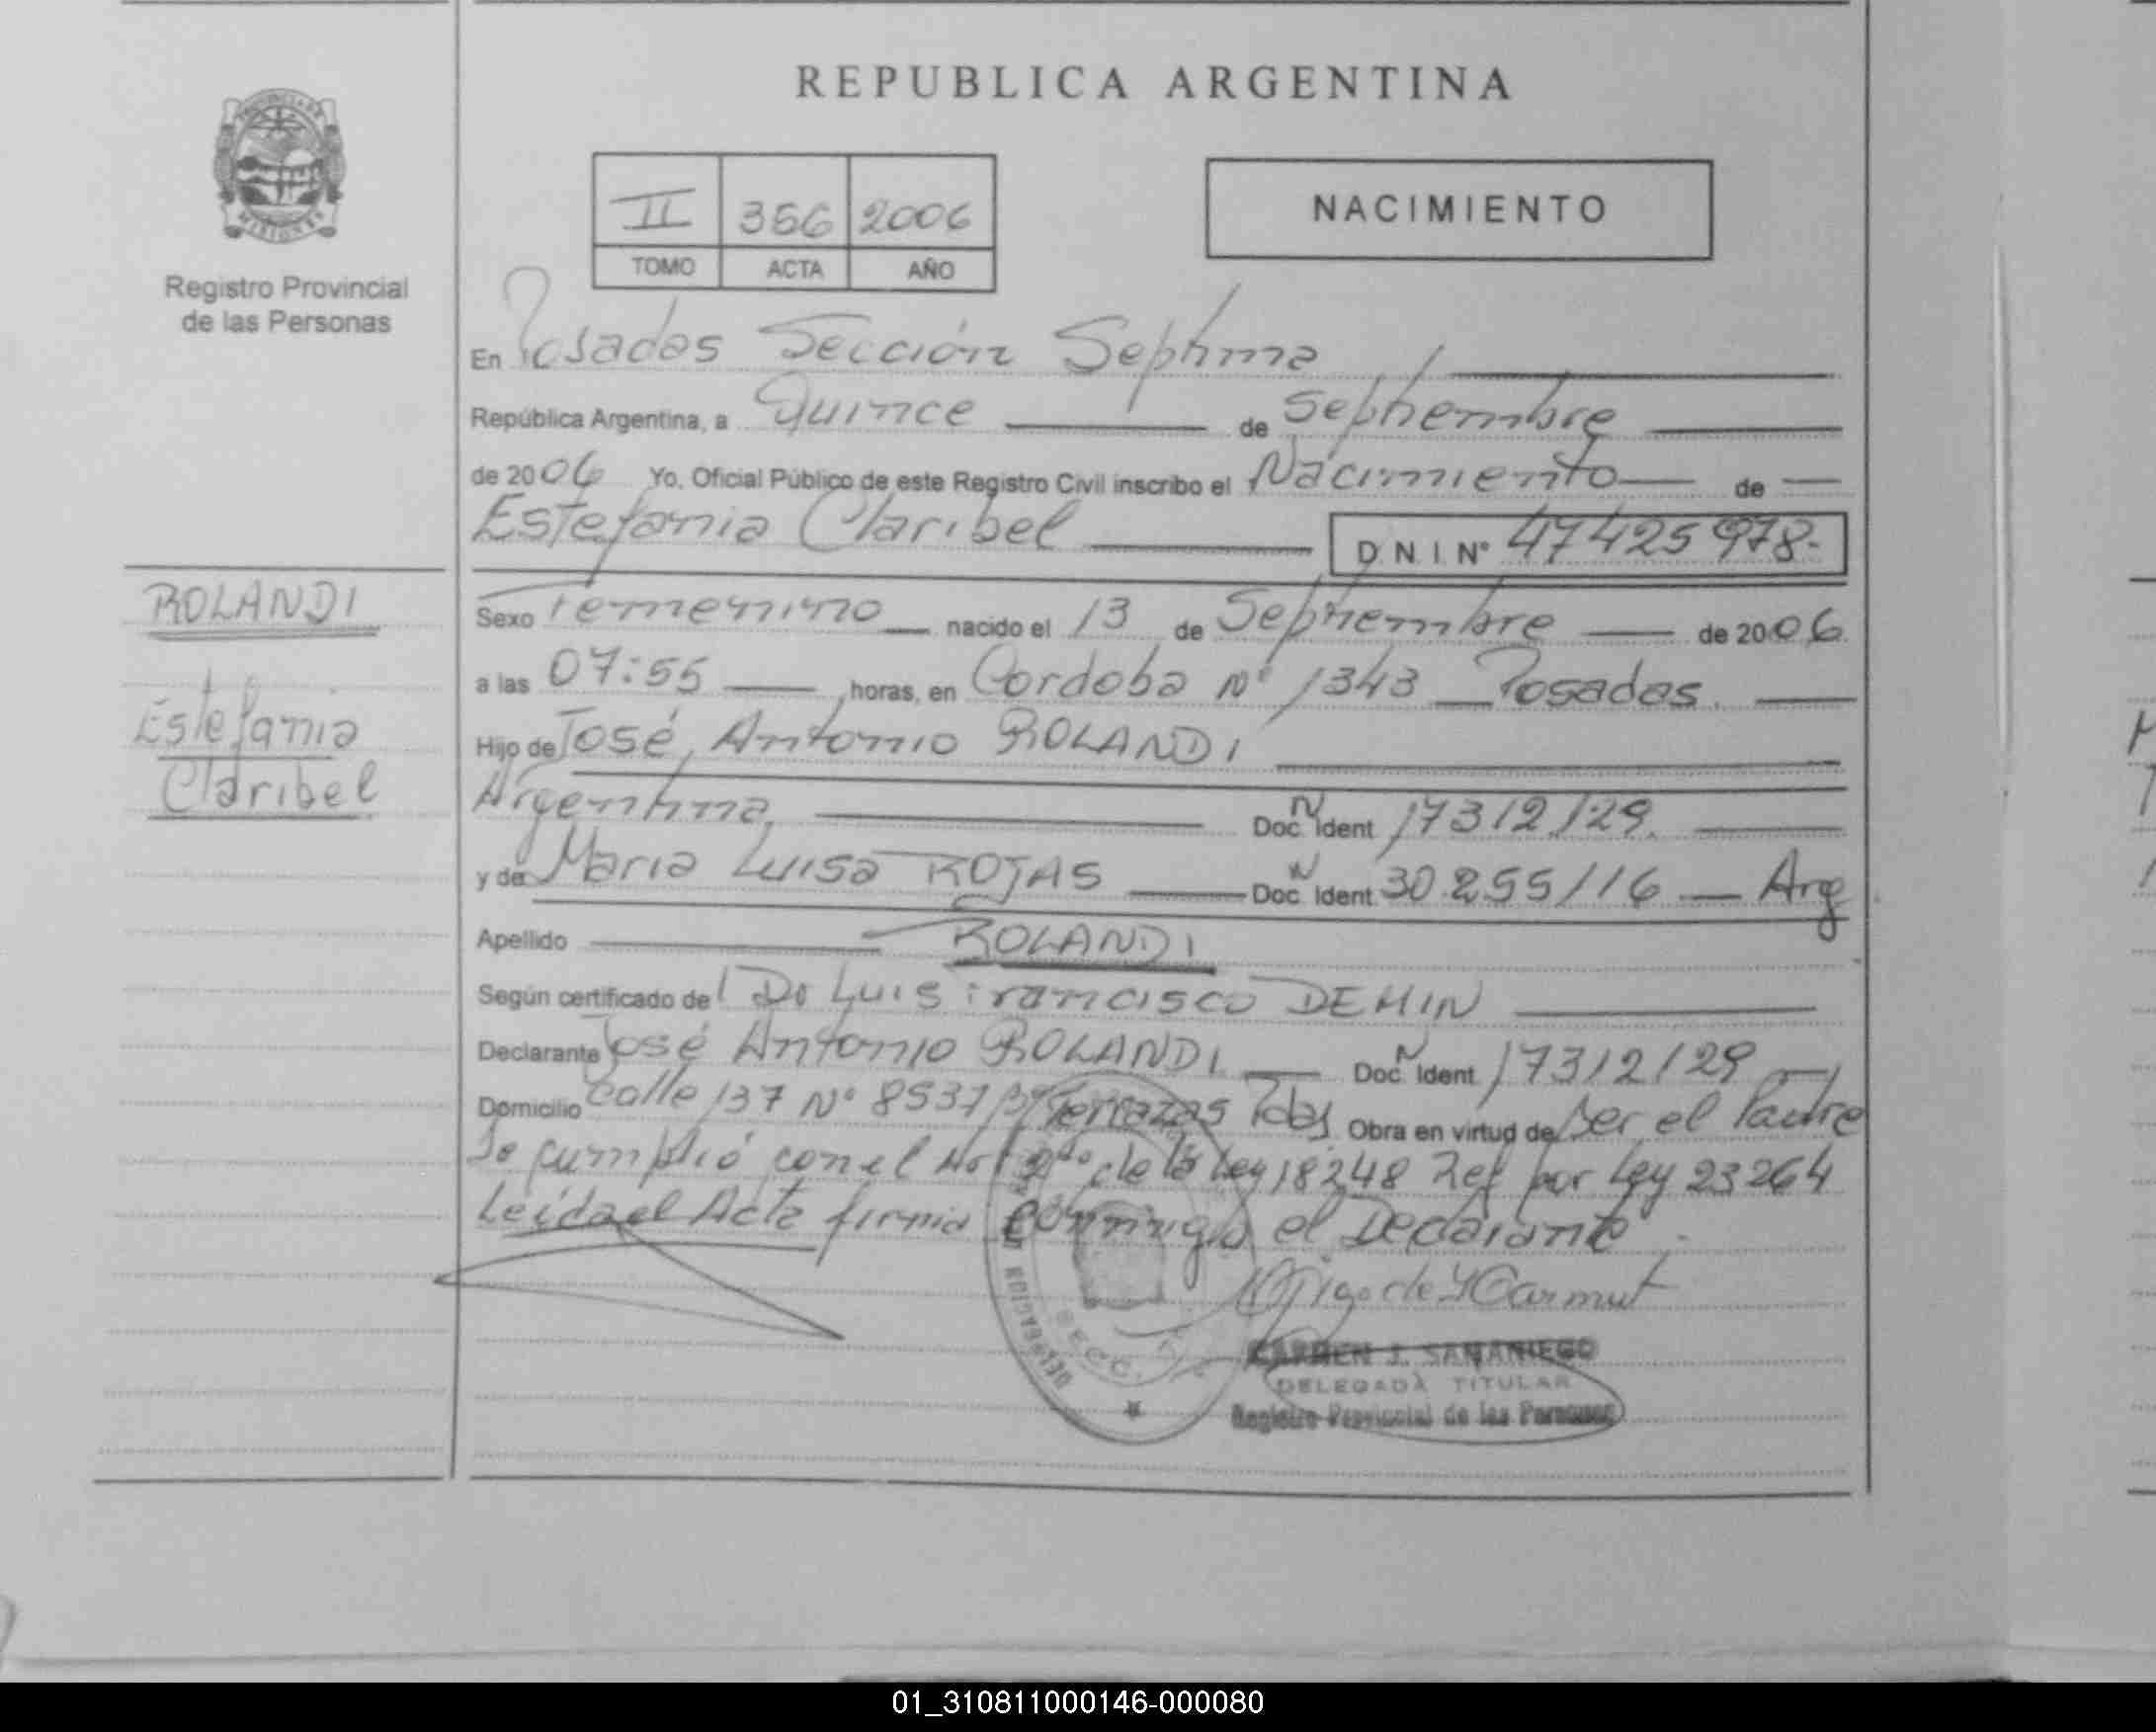 REPUBLICA ARGENTINA
PROVINCIA DE
MISIONES
Registro Provincial
de las Personas
II 356 2006
TOMO ACTA AÑO
NACIMIENTO
En Posadas Sección Septima
República Argentina, a Quince de Septiembre
de 2006 Yo, Oficial Público de este Registro Civil inscribo el Nacimiento de
Estefania Claribel D.N.I. Nº 47425978.-
ROLANDI
Estefania
Claribel
Sexo Femenino nacido el 13 de Septiembre de 2006
a las 07:55 horas, en Cordoba Nº 1343 Posadas.
Hijo de José Antonio ROLANDI
Argentina Doc. N Ident 17312129.
y de Maria Luisa ROJAS Doc. N Ident. 30.255/16 Arg
Apellido ROLANDI
Según certificado del Dr Luis Francisco DEMIN
Declarante José Antonio ROLANDI Doc. N Ident 17312129
Domicilio Calle 137 Nº 8537 Terrazas Pdas Obra en virtud de Ser el Padre
Se cumplió con el Art 2do de la Ley 18248 Ref por Ley 23264
Leída el Acta firma conmigo el Declarante
DELEGACION
SECC.
CARMEN J. SAMANIEGO
DELEGADA TITULAR
Registro Provincial de las Personas
01_310811000146-000080